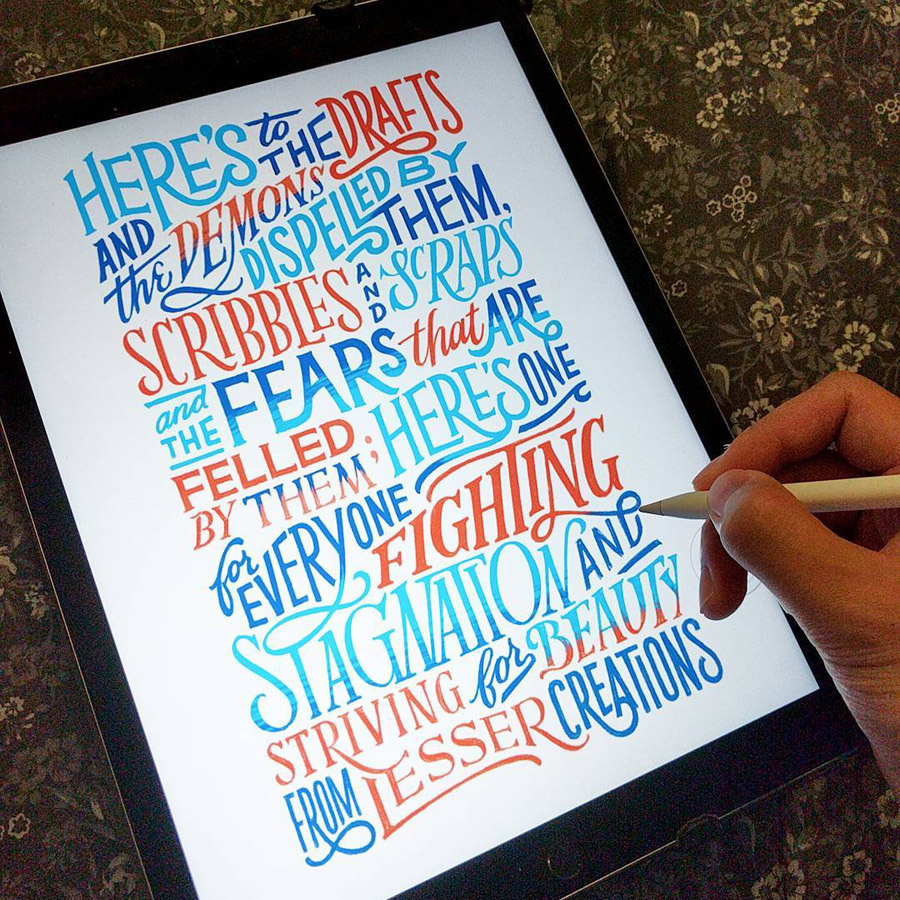 HERE'S to THE DRAFTS
AND the DEMONS DISPELLED BY THEM,
SCRIBBLES AND SCRAPS
and THE FEARS that ARE
FELLED BY THEM; HERE'S ONE
for EVERYONE FIGHTING
STAGNATION AND
STRIVING for BEAUTY
FROM LESSER CREATIONS